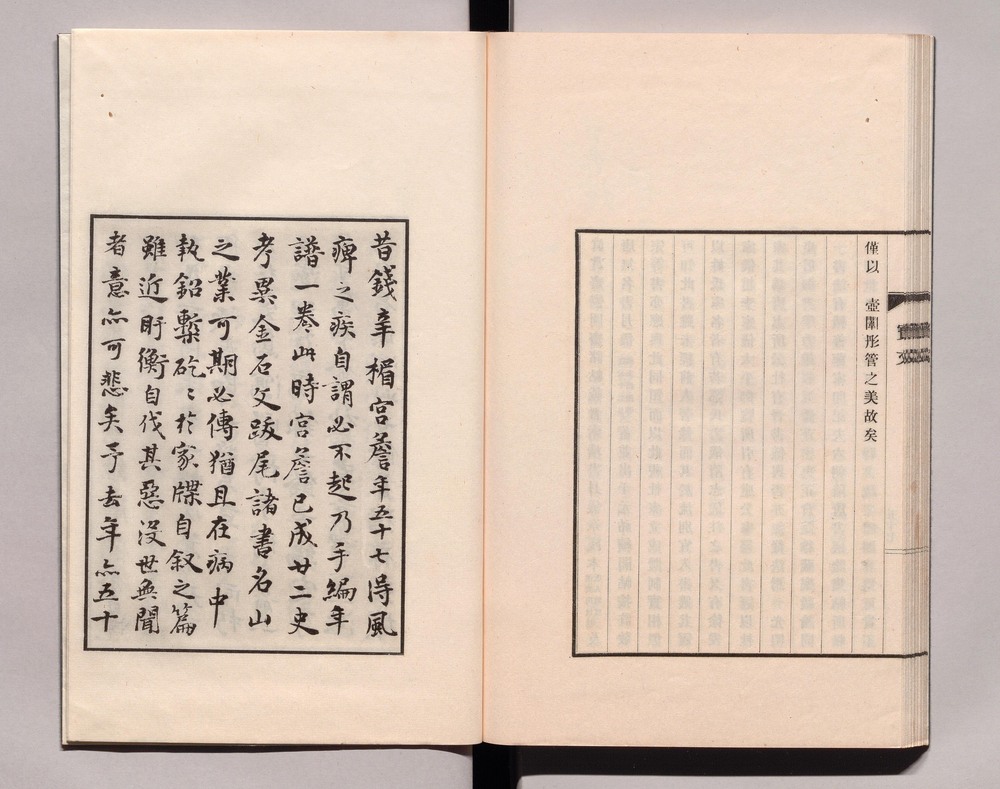 僅以　壺閫彤管之美故矣
昔錢辛楣宮詹年五十七得風
痺之疾自謂必不起乃手編年
譜一卷此時宮詹已成廿二史
考異金石文跋尾諸書名山
之業可期必傳猶且在病中
執鉛槧矻〻於家牒自叙之篇
雖近盱衡自伐其惡沒世無聞
者意亦可悲矣予去年亦五十